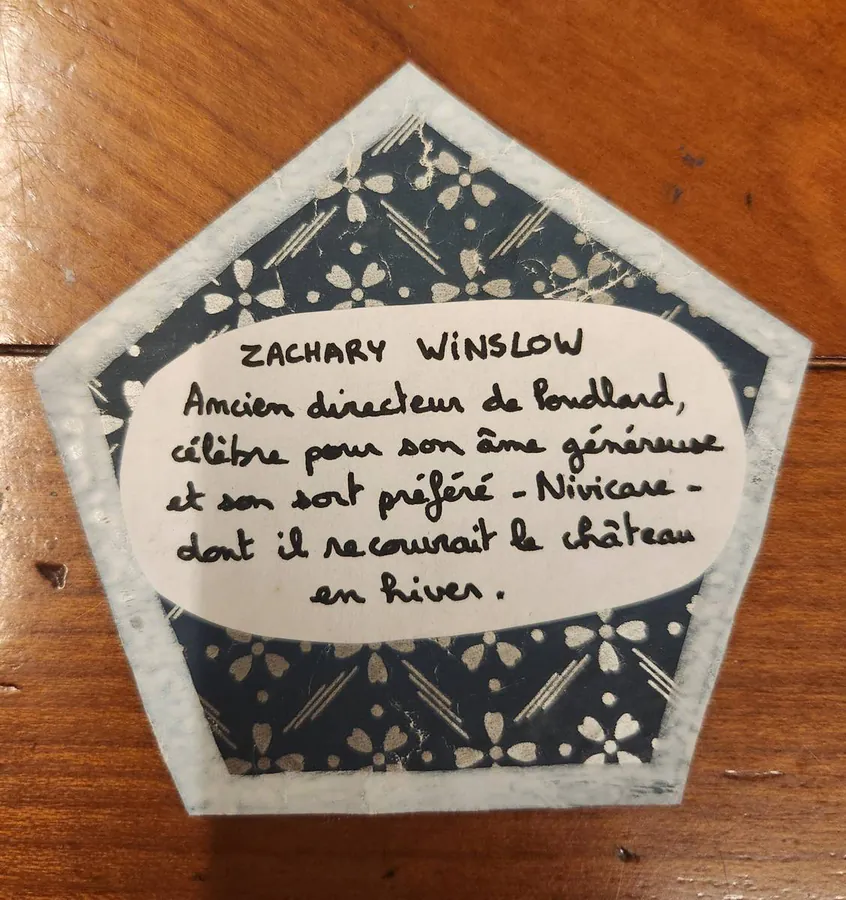 ZACHARY WINSLOW
Ancien directeur de Poudlard,
célèbre pour son âme généreuse
et son sort préféré - Nivicare -
dont il recouvrait le château
en hiver.